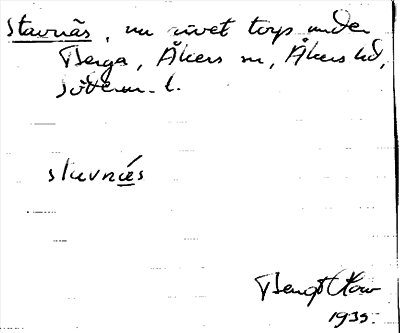 Stavnäs, nu rivet torp under
Berga, Åkers sn, Åkers hd,
Söderm. l.
stavnäs
Bengt
1935.